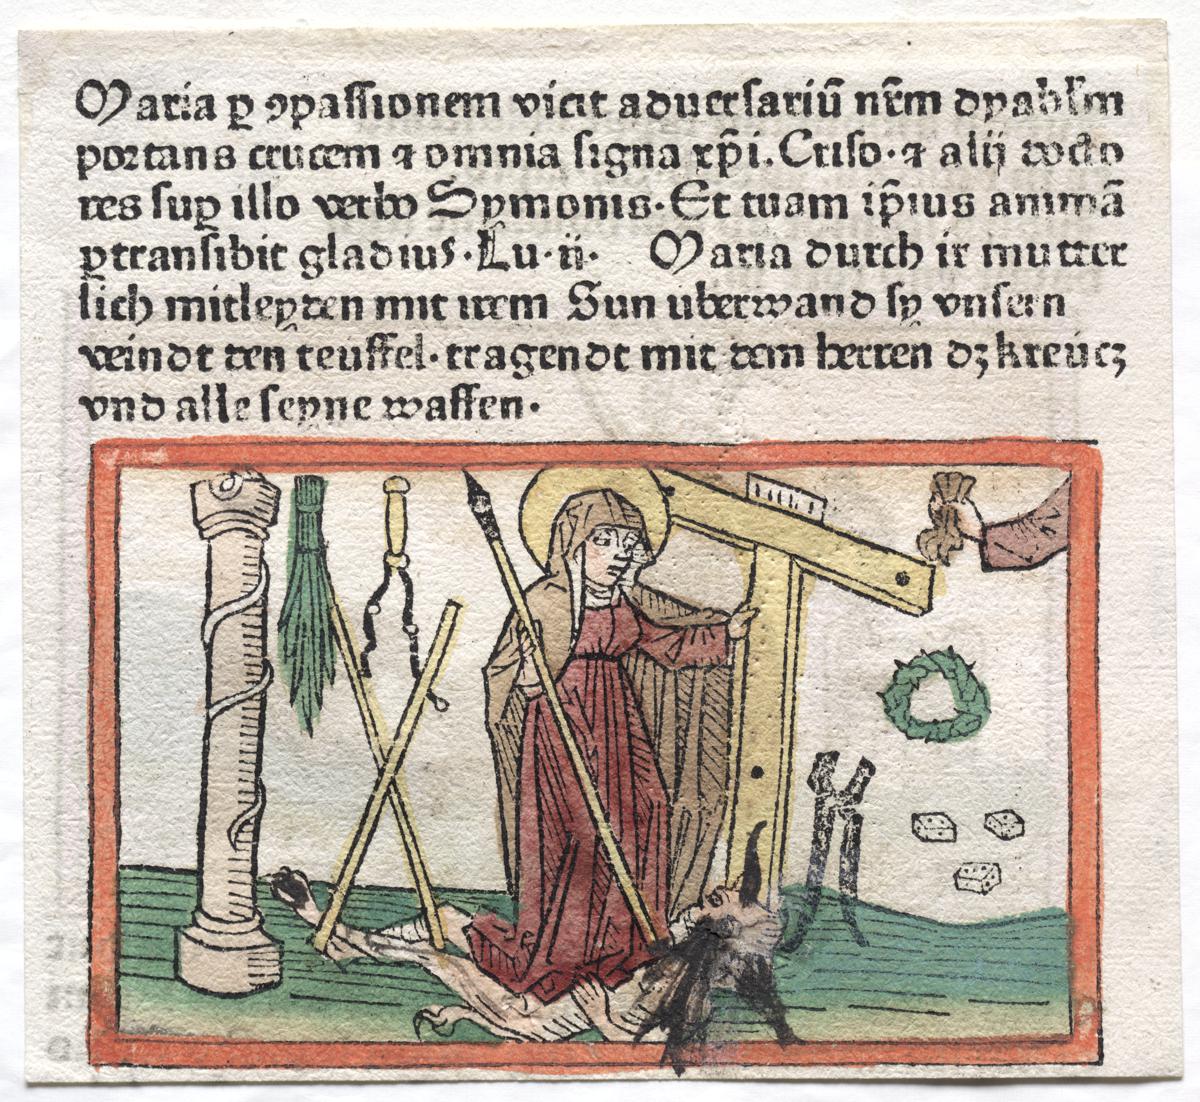 Maria ꝑ ꝯpassionem vicit aduersariū nr̄m dyablm̄
portans crucem ⁊ omnia signa xp̄i. Criso· ⁊ alij docto
res suꝑ illo verbo Symonis· Et tuam ip̄ius animā
ꝑtransibit gladius· Lu· ii· Maria durch ir mutter
lich mitleyden mit irem Sun überwand sy vnsern
veindt den teüffel· tragendt mit dem herren dz kreücz
vnd alle seyne waffen·